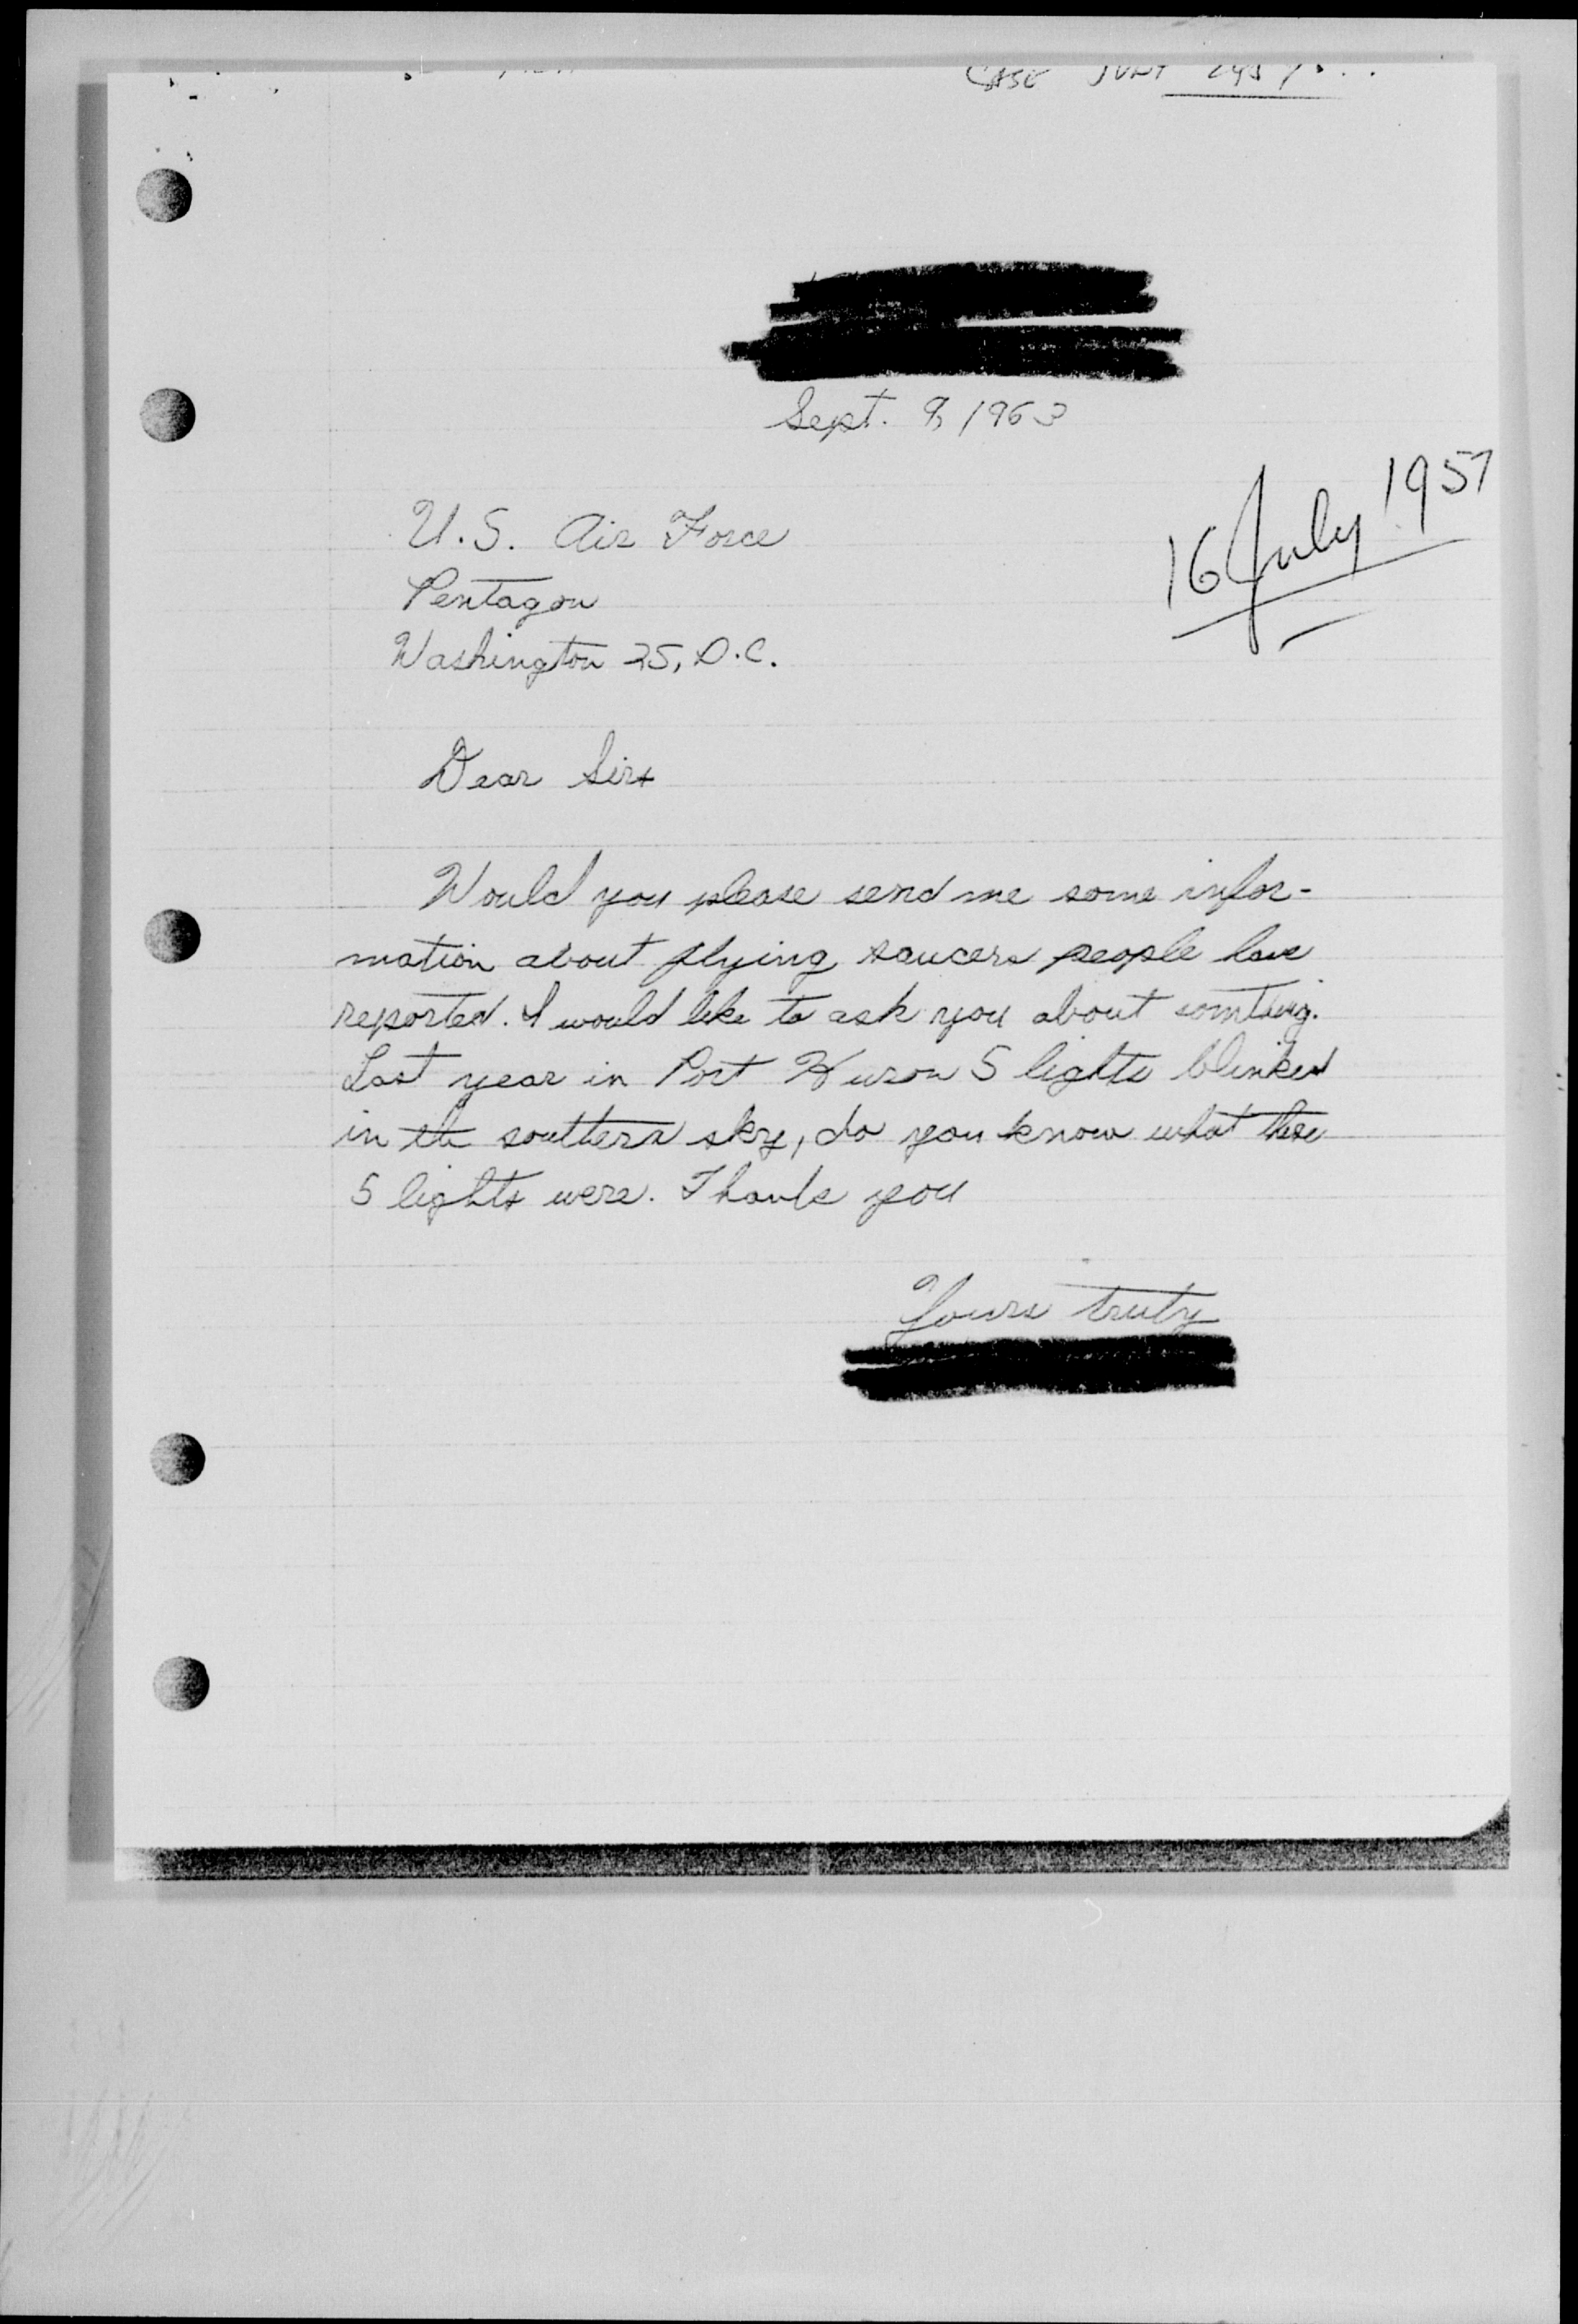 CASE
Sept. 9, 1963
16 July 1957
U.S. Air Force
Pentagon
Washington 25, D.C.
Dear Sirs
Would you please send me some infor-
mation about flying saucers people have
reported. I would like to ask you about somting.
Last year in Port Huron 5 lights blinked
in the southern sky, do you know what these
5 lights were. Thank you
Yours truly